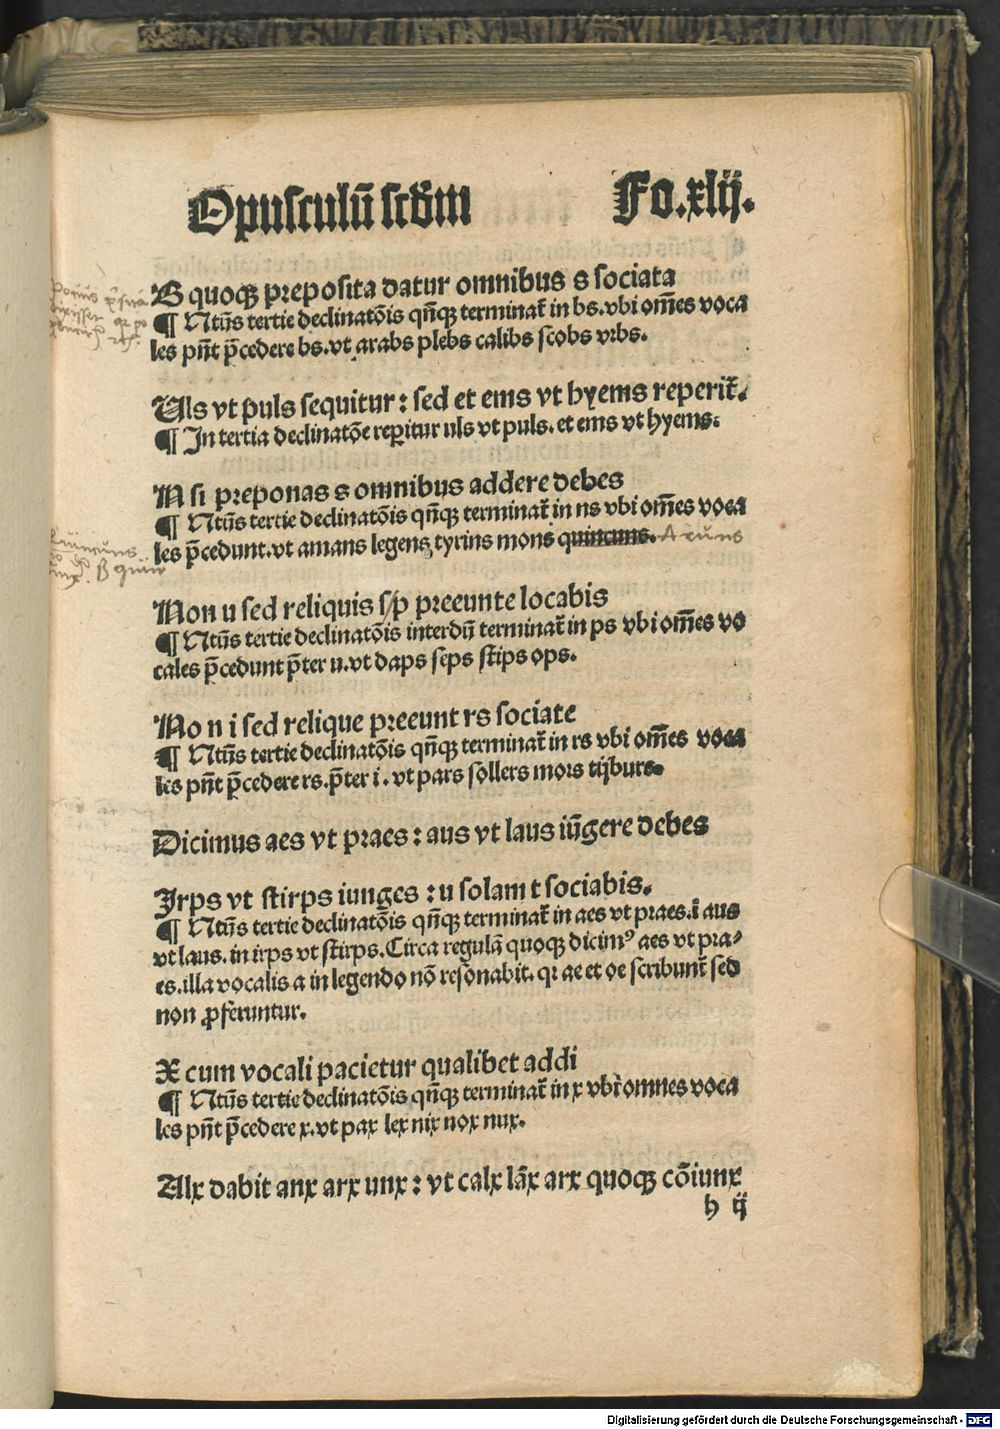 Opusculū scd̄m Fo.xlij.
B quoqꝫ preposita datur omnibus s sociata
¶ Ntūs tertie declinatōis qn̄qꝫ terminat̄ in bs.vbi om̄es voca
les pn̄t p̄cedere bs.vt arabs plebs calibs scobs vrbs.
Uls vt puls sequitur: sed et ems vt hyems reperit̄.
¶ In tertia declinatōe reꝑitur uls vt puls. et ems vt hyems.
N si preponas s omnibus addere debes
¶ Ntūs tertie declinatōis qn̄qꝫ terminat̄ in ns vbi om̄es voca
les p̄cedunt.vt amans legens tyrins mons quincuns. Aruns
Non u sed reliquis s/p preeunte locabis
¶ Ntūs tertie declinatōis interdū terminat̄ in ps vbi om̄es vo
cales p̄cedunt p̄ter u.vt daps seps stips ops.
No n i sed relique preeunt rs sociate
¶ Ntūs tertie declinatōis qn̄qꝫ terminat̄ in rs vbi om̄es voca
les pn̄t p̄cedere rs.p̄ter i. vt pars sollers mors tijburs.
Dicimus aes vt praes: aus vt laus iūgere debes
Irps vt stirps iunges: u solam t sociabis.
¶ Ntūs tertie declinatōis qn̄qꝫ terminat̄ in aes vt praes.ī aus
vt laus. in irps vt stirps. Circa regulā quoqꝫ dicimꝰ aes vt pra⸗
es.illa vocalis a in legendo nō resonabit. qꝛ ae et oe scribunt̄ sed
non ꝓferuntur.
X cum vocali pacietur qualibet addi
¶ Ntūs tertie declinatōis qn̄qꝫ terminat̄ in x vbi omnes voca
les pn̄t p̄cedere x.vt pax lex nix nox nux.
Alx dabit anx arx unx: vt calx lāx arx quoqꝫ cōiunx
h ij
Digitalisierung gefördert durch die Deutsche Forschungsgemeinschaft - DFG